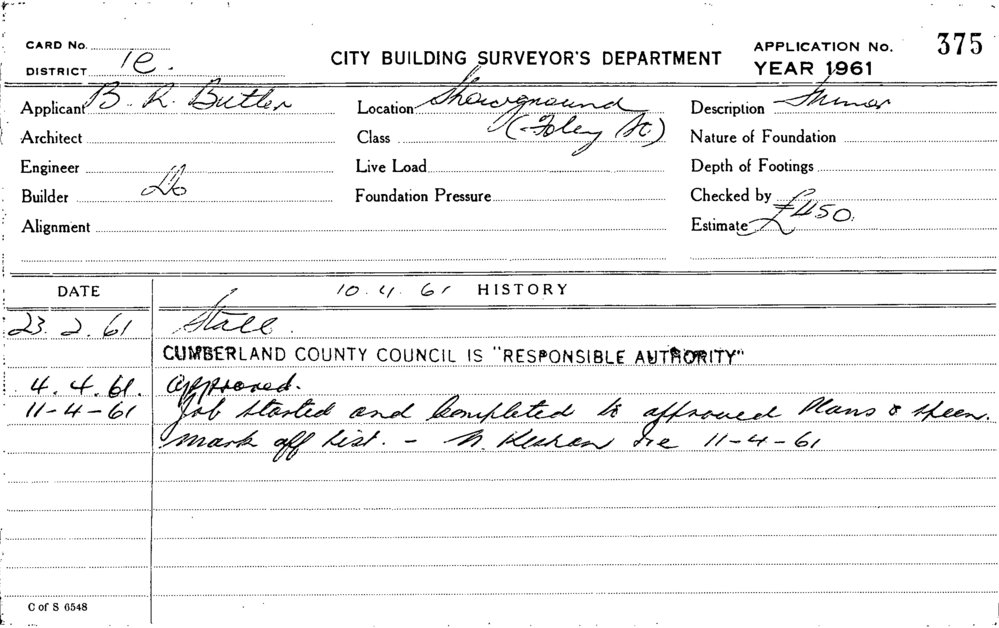 CARD No.
DISTRICT 1e.
CITY BUILDING SURVEYOR'S DEPARTMENT
APPLICATION No. 375
YEAR 1961
Applicant B. R. Butler
Location Showground
Description Minor
Architect
Class (Foley St)
Nature of Foundation
Engineer
Live Load
Depth of Footings
Builder Do
Foundation Pressure
Checked by
Alignment
Estimate £450.
DATE
10.4.61 HISTORY
23.2.61 Stall.
CUMBERLAND COUNTY COUNCIL IS "RESPONSIBLE AUTHORITY"
4.4.61. Approved.
11-4-61 Job started and completed to approved Plans &
mark off list. - 11-4-61
C of S 6548